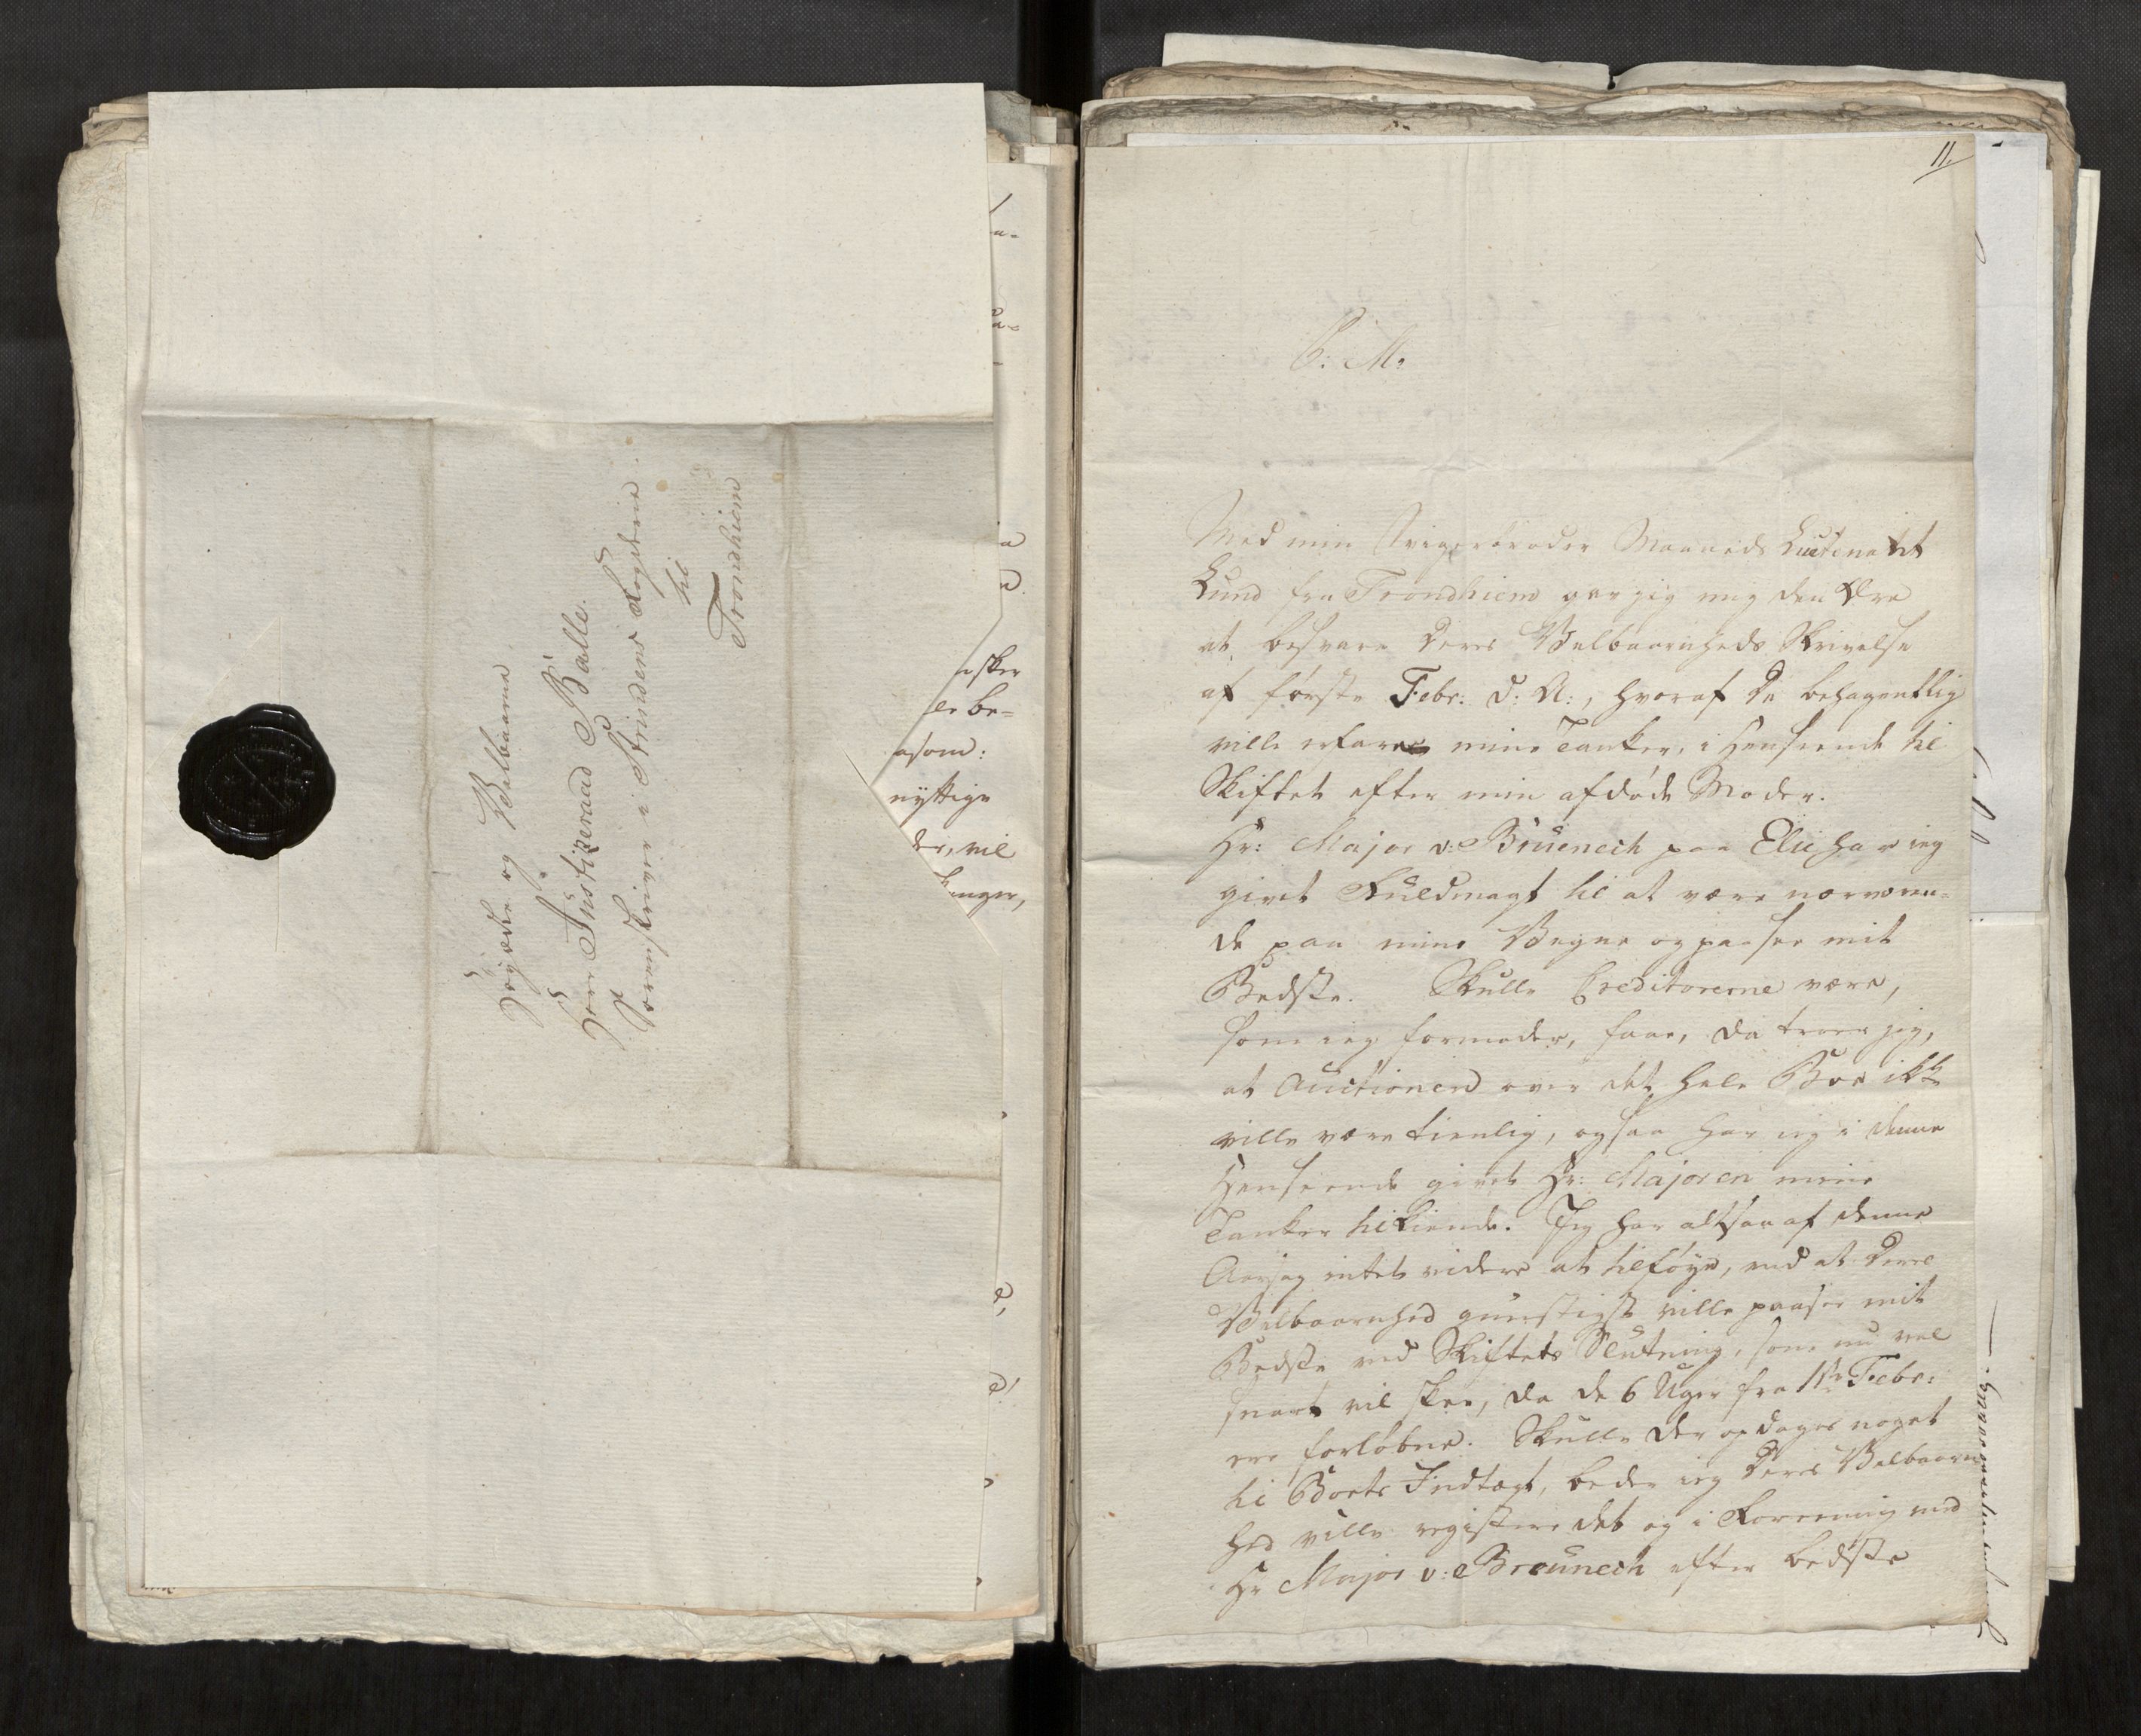 Høyædle og Velbaarne
Herr Justizeraad Bälle.
Sorenskriver i Strindens Fogderie
til
Trondhiem
esker
le be=
asom:
nyttige
der, vil
anger,
11.
P. M.
Med min Svigerbroder Maaneds Lieutenant
Lund fra Trondhiem giør jeg mig den Ære
at besvare Deres Velbaarnheds Skrivelse
af første Febr: d: A:, hvoraf De behagentlig
ville erfare mine Tanker, i Henseende til
Skiftet efter min afdøde Moder.
Hr: Major v: Brüenech paa Elie har ieg
givet Fuldmagt til at være nærværen=
de paa mine Vegne og paasee mit
Bedste. Skulle Creditorerne være,
som ieg formoder, faae, da troer jeg,
at Auctionen over det hele Boe ikke
ville være tienlig, ogsaa har ieg i denne
Henseende givet Hr: Majoren mine
Tanker tilkiende. Jeg har altsaa af denne
Aarsag intet videre at tilføye, end at Deres
Velbaarnhed gunstigst ville paasee mit
Bedste ved Skiftets Slutning, som nu vel
snart vil skee, da de 6 Uger fra 1ste Febr:
ere forløbne. Skulle der opdages noget
til Boets Indtægt, beder ieg Deres Velbaarn
hed ville registere det og i Foreening med
Hr Major v: Breünech efter bedste